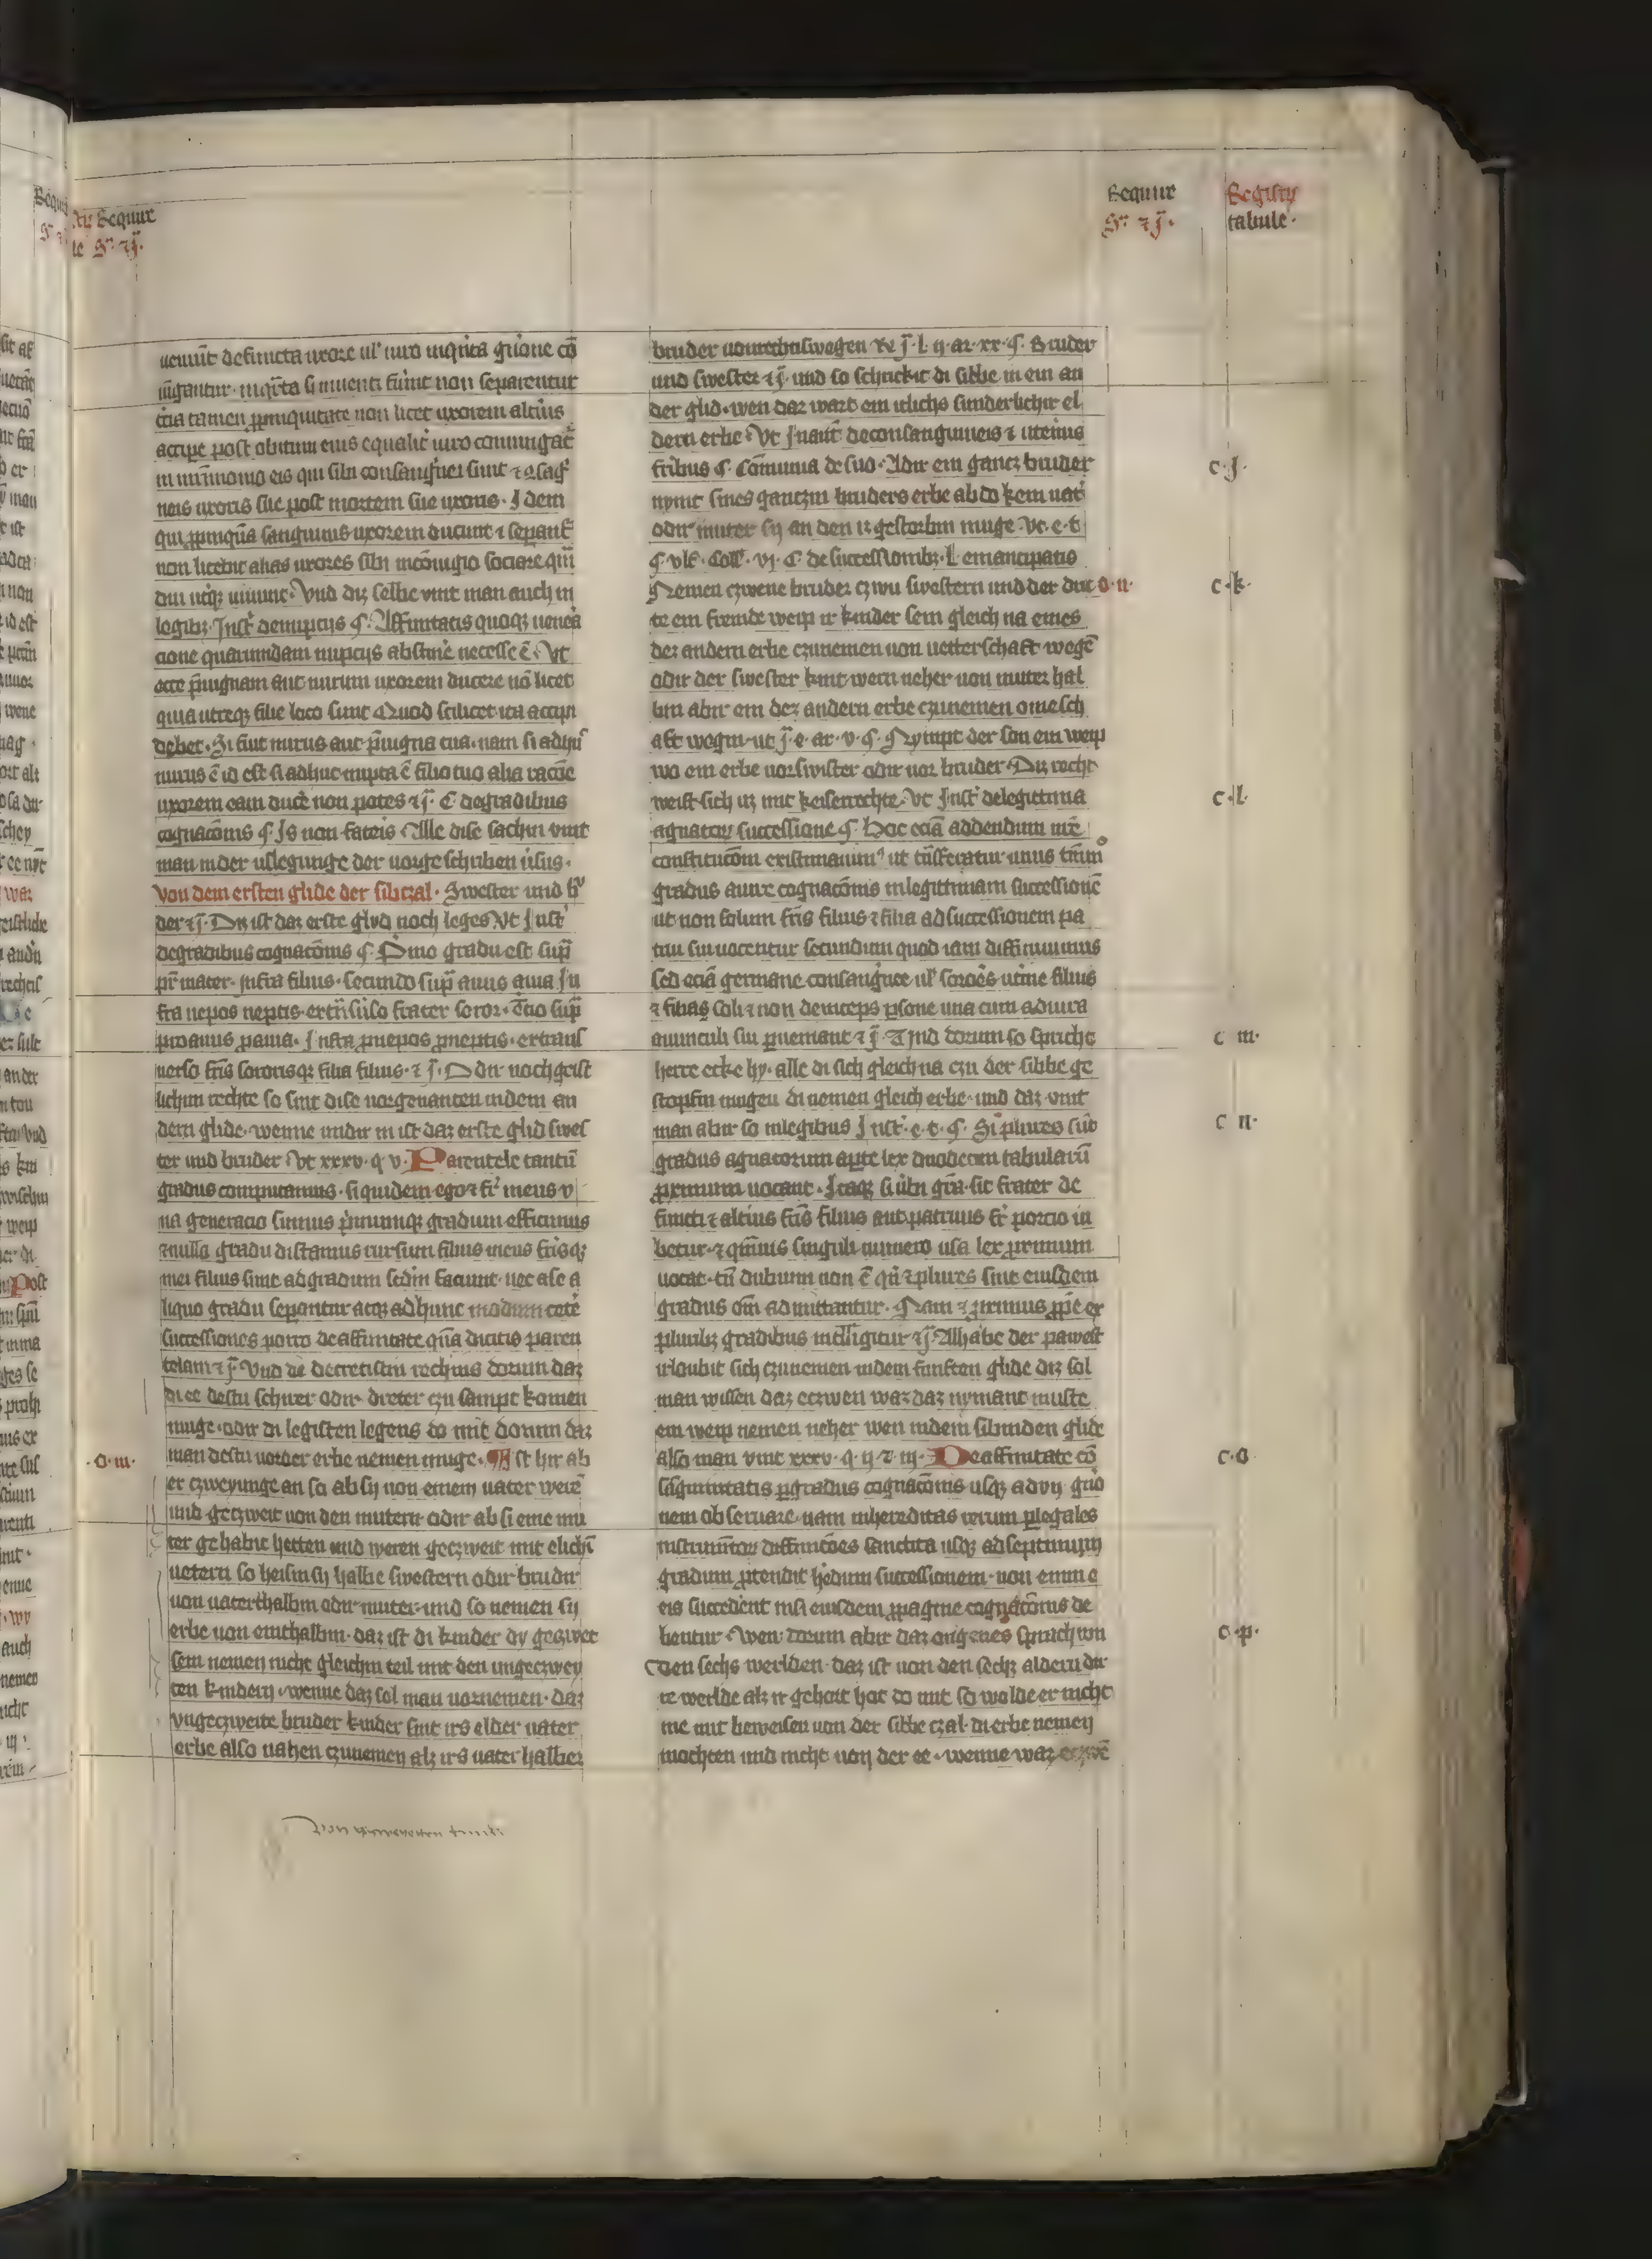 Sequitur
Gͬ ⁊ J̄.
Registrum
tabule.
uenit defuncta uxore ul' uiro in q̄rta gn̄one cō
iūgantur. in q̄rta si inuenti fuīnt non separentur
t̄cia tamen ꝓpinquitate non licet uxorem alt̄ius
accipe post obitum eius equalit' uiro coniungat̄
in mr̄imonio eis qui sibi consanguinei sunt ⁊ ꝯsag'
neis uxoris sue post mortem sue uxoris. Idem
qui ꝓpinquā sanguinis uxorem ducunt ⁊ separant'
non licebit alias uxores sibi in cōiugio sociare qm̄
diu utq̄ uiuunt. Vnd diz selbe vint man auch in
legibꝫ Inst' de nupciis ¶ Affinitatis quoqꝫ uenera
cione quarumdam nupciis abstinē necesse ē. Vt
ecce p̄uignam aut nurum uxorem ducere nō licet
quia utreqꝫ filie loco sunt Quod scilicet ita accipi
debet. Si fuit nurus aut p̄uigna tua. nam si adhuc
nurus ē id est si adhuc nupta ē filio tuo alia racōe
uxorem eam ducē non potes ⁊ J̄. C de gradibus
cognacōnis ¶ Is non fateis Alle dise sachin vint
man in der uslegunge der uorgeschriben ūsus.
Von dem ersten glide der sibczal. Swester und br̄u
der ⁊ J̄. Diz ist daz erste glyd noch leges Vt Inst'
de gradibus cognacōnis ¶ Primo gradu est sup̄
pr̄ mater. infra filius. secundo sup̄ auus auia In
fra nepos neptis. ex t̄nsūso frater soror. t̄cio sup̄
proauus proauia. Infra ꝓnepos ꝓneptis. ex trans
uerso fr̄is sororisqꝫ filia filius. ⁊ J̄. Odir noch geist
lichim rechte so sint dise uorgenanten in dem an
dern glide. wenne undir in ist daz erste glid swes
ter und bruder Vt xxxv. q̄ v. Parentele tantū
gradus computamus. si quidem ego ⁊ fr̄ meus v
na generacio sumus primumqꝫ gradum efficimus
⁊ nullo gradu distamus rursum filius meus fr̄isqꝫ
mei filius sunt ad gradum sc̄dm faciunt. nec a se a
liquo gradu sepantur atqꝫ ad hunc modum cetē
successiones porro de affinitate qm̄ dicitis paren
telam ⁊ J̄. Vnd di decretistin rechins dorum daz
di ee destu schirer odir dreter czu sampt komen
muge. odir di legisten legens do mit dorum daz
man destu uorder erbe nemen muge. ¶ Ist hir ab
er czweyunge an so ab sy uon einem uater werē
und geczweit uon den mutern odir ab si eine mu
ter gehabit hetten und weren geczweit mit elichī
uetern so heisin sy halbe swestern odir brudir
uon uaterthalbin odir muter. und so nemen sy
erbe uon einthalbin. daz ist di kinder dy geczwet
sein nemen nicht gleichin teil mit den ungeczwey
ten kindern. wenne daz sol man uornemen. daz
vngeczweite bruder kinder sint irs elder uater
erbe also nahen czunemen alz irs uater halber
c. J.
c. k.
c. l.
c m.
c n.
c. o.
c. p.
o. m.
o. n.
bruder uon rechtiswegen Re J̄. l. ii. ar. xx. ¶ Bruder
und swester ⁊ J̄ und so schrickit di sibbe in ein an
der glid. wen daz wart em itlichs sunderlichir el
dern erbe. Vt Inaut' de consanguineis ⁊ uterinis
fribus ¶ Cōmunia de suo. Adir ein gancz bruder
nymt sines ganczin bruders erbe ab do kein uat'
odir muter sy an den iz gestorbin muge Vt e. t
¶ ult'. Coll'. vi. C de successionibꝫ. L emancipatis
Nemen czwene bruder czwu swestern und der drit
te ein fremde weip ir kinder sein gleich na eines
dez andern erbe czunemen uon uetterschaft wegē
odir der swester kint wern neher uon muter hal
bin abir ein dez andern erbe czunemen omesch
aft wegin. ut J̄. e. ar. v. ¶ Nympt der son ein weip
wo ein erbe uor swister odir uor bruder. Diz recht
weist sich uz mit keiserrechte. Vt Inst' de legittima
agnatorum successione ¶ Hoc eciā addendum nr̄e
constitucōni existimauimus ut t̄nsferatur unus t̄m
gradus a iure cognacōnis in legittimam successionē
ut non solum fr̄is filius ⁊ filia ad successionem pa
trui sui uocentur secundum quod iam diffiniuimus
sed eciā germane consanguinee ul' sororis uterine filius
⁊ filia soli ⁊ non deinceps psone una cum ad iura
auunculi sui pueniant ⁊ J̄. Vnd dorum so spricht
herre ecke hy. alle di sich gleich na czu der sibbe ge
stopfin mugen di nemen gleich erbe. und daz vint
man abir so in legibus Inst'. e. t. ¶. Si plures sint
gradus agnatorum apte lex duodecim tabularū
proximum uocant. Itaqꝫ si ūbi gr̄a. sit frater de
functi ⁊ alterius fr̄is filius aut patruus fr̄ porcio iu
betur. ⁊ quāuis singulari numero usa lex proximum
uocat. tn̄ dubium non ē qn̄ ⁊ plures sint eiusdem
gradus om̄s admittantur. Nam ⁊ proximus ꝓprie ex
pluribꝫ gradibus intelligitur ⁊ J̄. Alhabe der pawest
irloubit sich czunemen in dem funften glide diz sol
man wissen daz eczwen waz daz nymant muste
ein weip nemen neher wen in dem sibinden glide
also man vint xxxv. q. ii. ⁊ iii. De affinitate cō
sāguinitatis p gradus cognacōnis usqꝫ ad vij. gn̄o
nem obseruare. nam in hereditas rerum p legales
instrumētorum diffinicōes sanctita usqꝫ ad septimum
gradum protendit hēdum successionem. non enim e
eis succedent nisi eiusdem ꝓpagine cognacōnis de
bentur Wen. dorum abir daz origenes sprach uon
den sechs werlden. daz ist uon den sechz aldern dir
te werlde alz ir gehort hot do mit so wolde er nicht
me mit beweisen uon der sibbe czal. di erbe nemen
mochten und nicht uon der ee. wenne waz eczwē